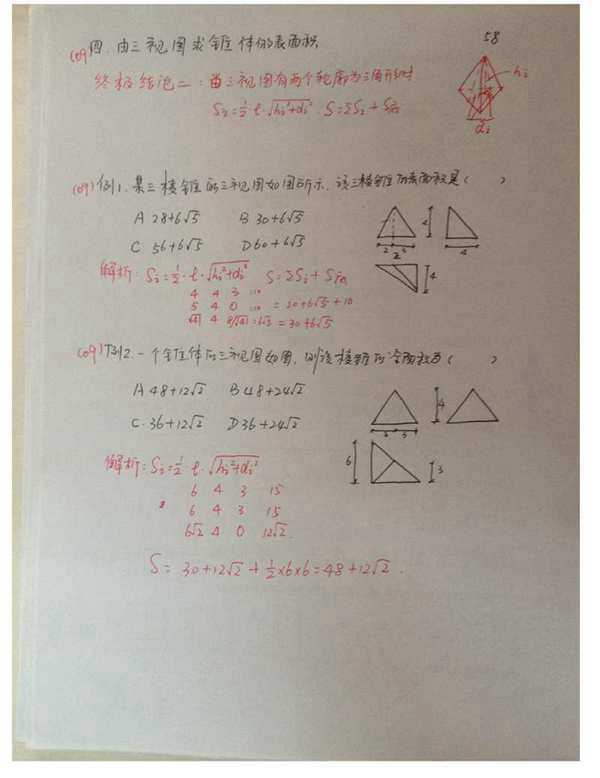 58
(09) 四.由三视图求锥体的表面积
终极结论二:当三视图有两个轮廓为三角形时
S₂=½·l·√hᵢ²+dᵢ² S=ΣSᵢ+S底
hᵢ
dᵢ
(09)例1.某三棱锥的三视图如图所示,该三棱锥的表面积是( )
A 28+6√5 B 30+6√5
C 56+6√5 D 60+6√5
4
2 3
4
4
解析:Sᵢ=½·l·√hᵢ²+dᵢ² S=ΣSᵢ+S底
4 4 3 :10
5 4 0 :10 =20+6√5+10
√41 4 8/√41 :6√5 =30+6√5
(09)例2.一个锥体的三视图如图,则该棱锥的全面积为( )
A 48+12√2 B 48+24√2
C.36+12√2 D 36+24√2
4
3 3
6
3
解析:Sᵢ=½·l·√hᵢ²+dᵢ²
6 4 3 15
6 4 3 15
6√2 4 0 12√2.
S= 30+12√2+½×6×6=48+12√2.